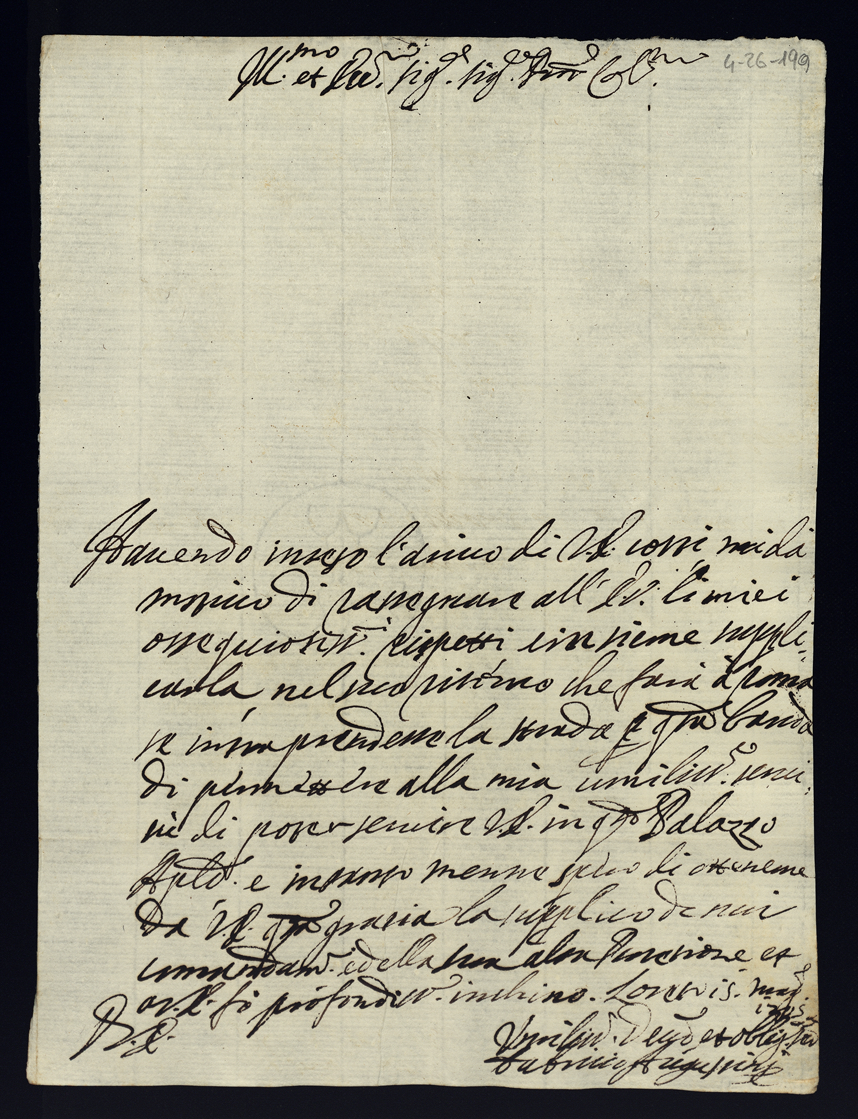 Ill.mo et Ecc. Sig.e Sig.e Pron Col.mo
4-26-199
Havendo inteso l'arivo di V.E. costì mi dà
motivo di rassegnare all'E.V. li miei
ossequiosis.i rispetti e insieme suppli-
carla nel suo ritorno che farà à Roma
se intraprendesse la strada p. q.ta banda
di permettere alla mia umiliss.a servi-
tù di poter servire V.E. in q.to Palazzo
Aplco. e intanto mentre spero di ottenerne
da V.E. q.ta grazia la supplico de suoi
comandam.i e della sua alta Protezione et
a V.E. fò profondiss.o inchino. Loreto 15. Mag.o
V.E.
Umiliss. et oblig. 
Fabrizio